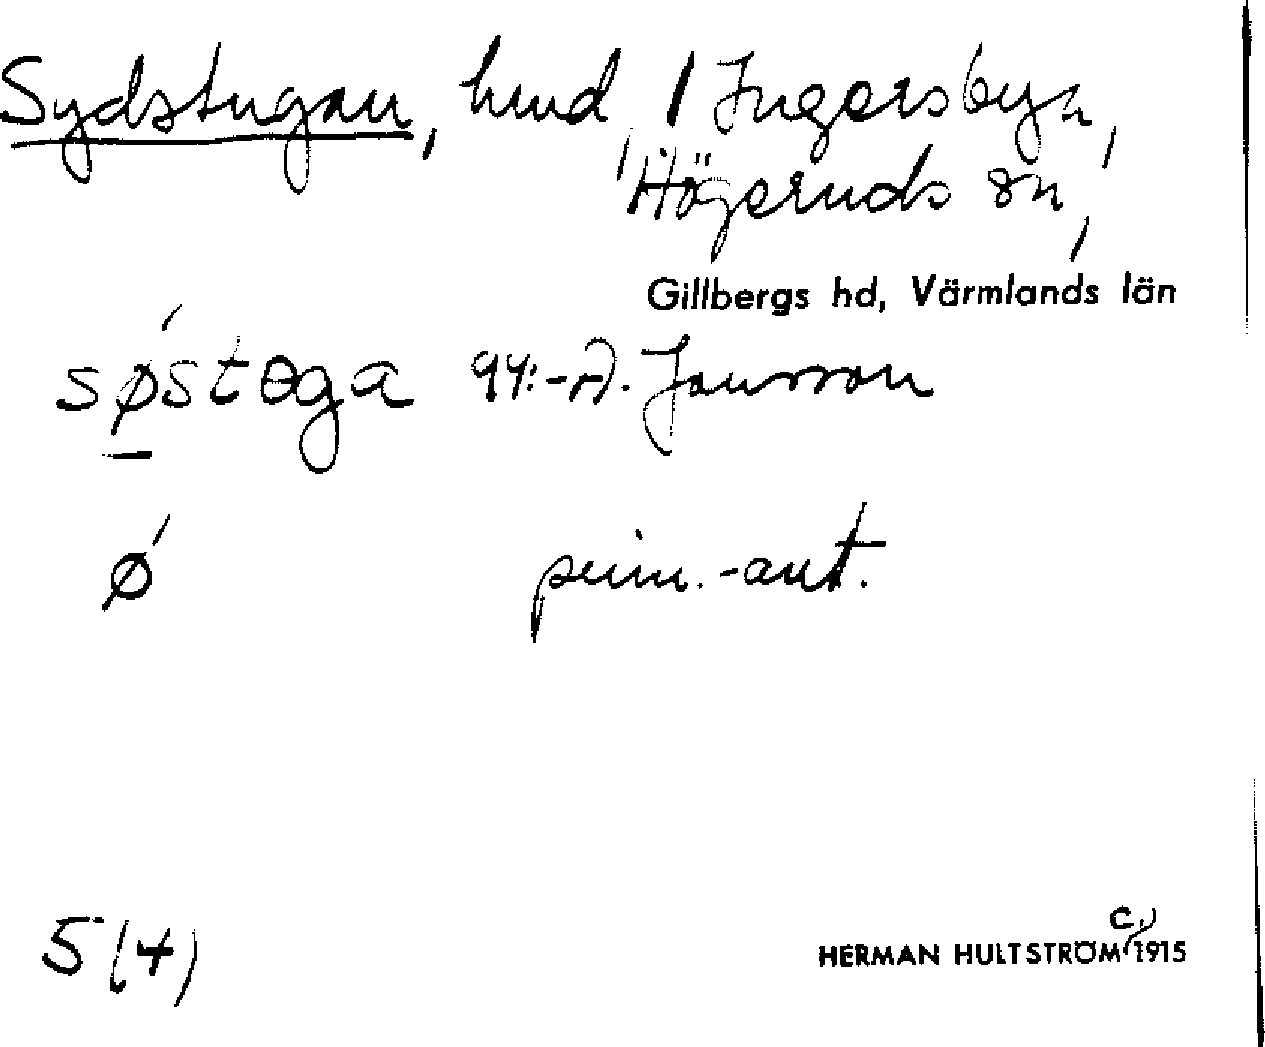 Sydstugan, hmd, i Ingersbyn,
Högeruds sn,
Gillbergs hd, Värmlands län
sǿstɵga 94:-A. Jansson
ǿ prim.-ant.
5 (4)
c.
HERMAN HULTSTRÖM 1915